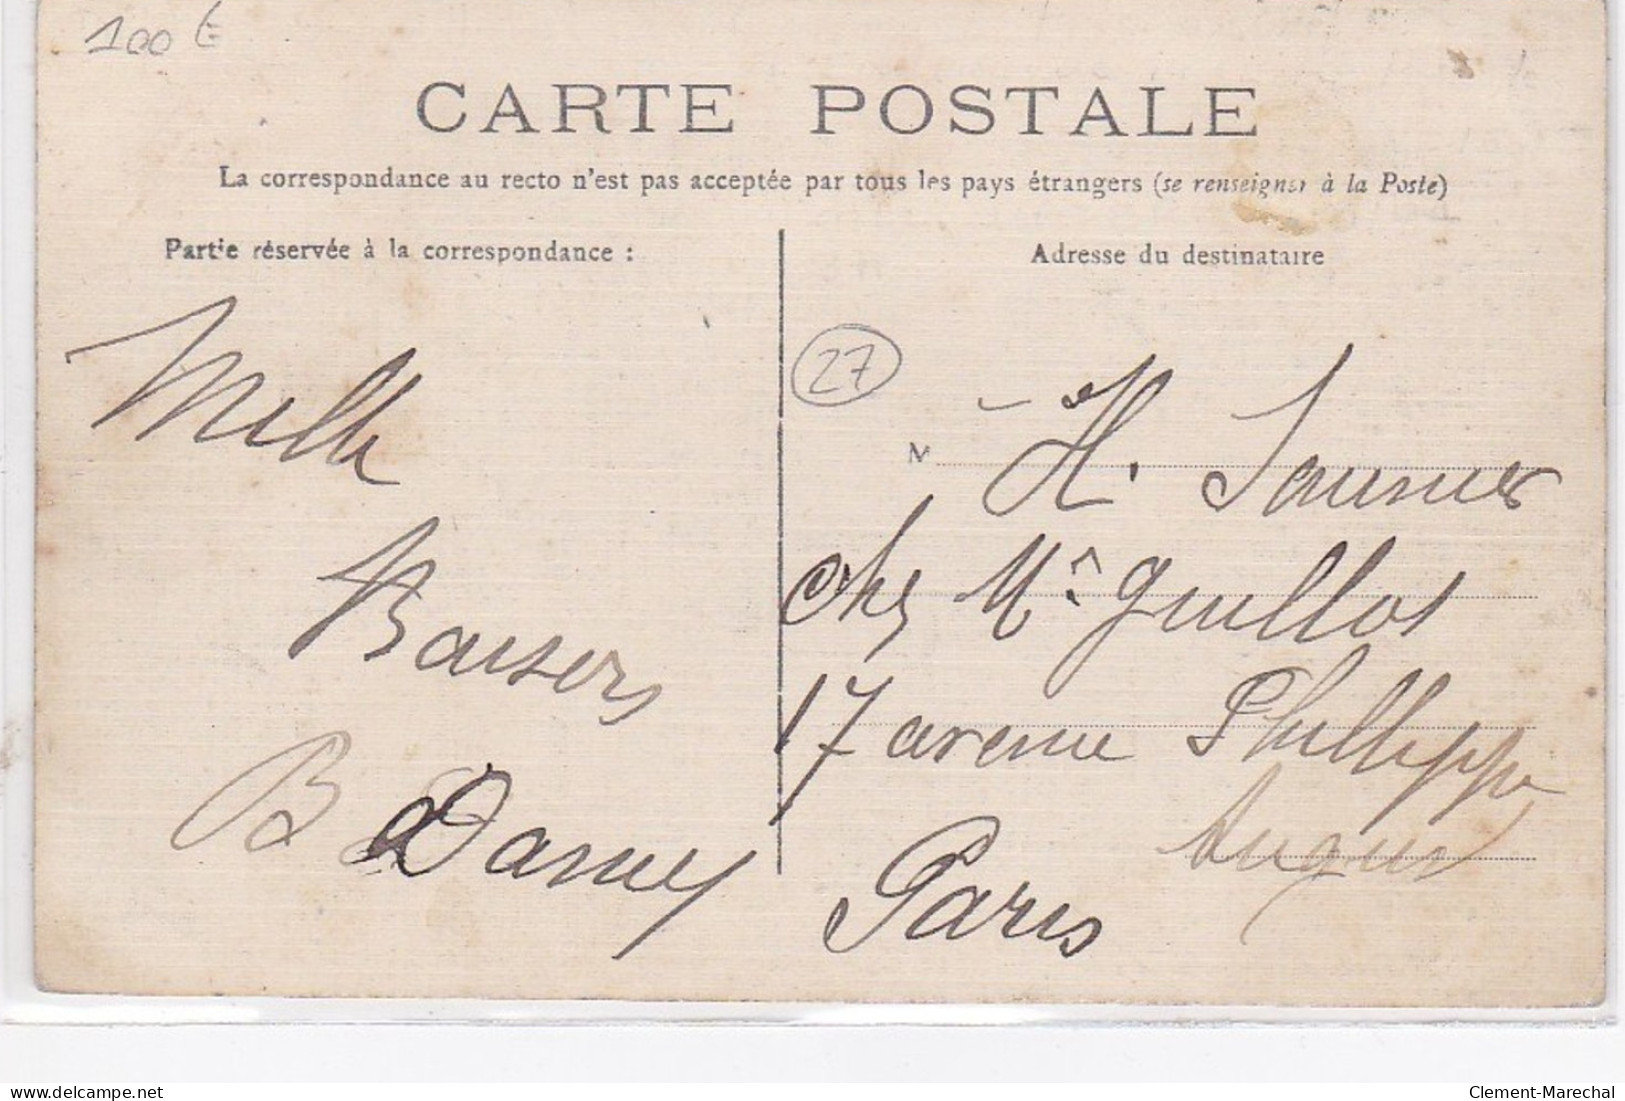 100 €
CARTE POSTALE
La correspondance au recto n'est pas acceptée par tous les pays étrangers (se renseigner à la Poste)
Partie réservée à la correspondance :
Mille
Baisers
B Damey
Adresse du destinataire
27
M H. Saunier
chez Mr Guillot
17 avenue Phillippe
August
Paris
delcampe.net
Clement-Marechal